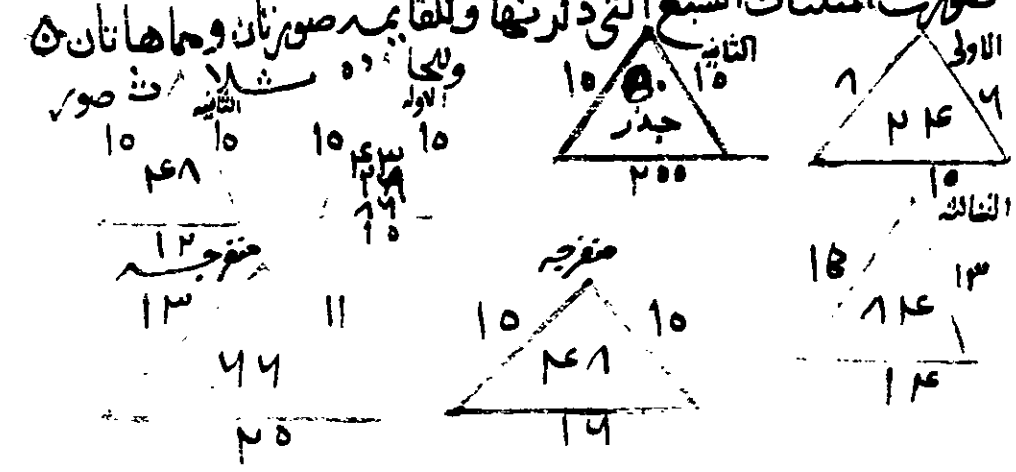 صورت المثلثات السبع التي ذكرتها وللقايمه صورتان وهما هاتان
الاولى
٨ ٦
٢۴
١٠
الثانيه
١٠ ١٠
٥٠
جذر
٢٠٠
وللحا ده ثلاث صور
الاوله
١٠ ١٠
۴٣
١٠
الثانيه
١٠ ١٠
۴٨
١٢
الثالثه
١٥ ١٣
٨۴
١۴
منفرجه
١٠ ١٠
۴٨
١٦
منفرجه
١٣ ١١
٦٦
٢٠